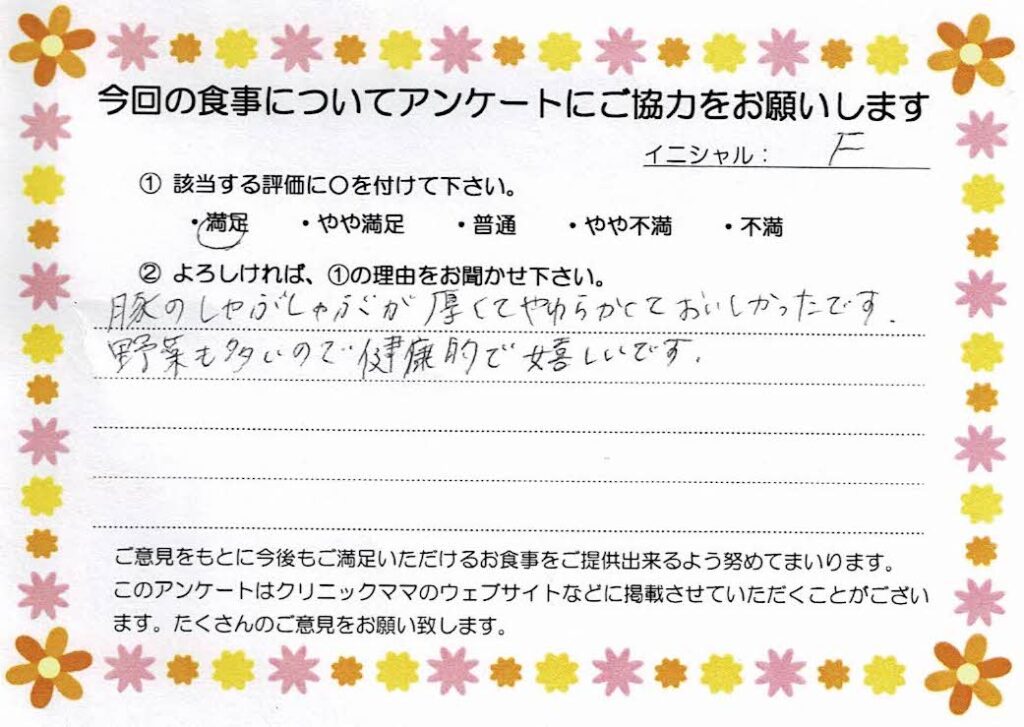 今回の食事についてアンケートにご協力をお願いします
イニシャル： F
① 該当する評価に○を付けて下さい。
・満足 ・やや満足 ・普通 ・やや不満 ・不満
② よろしければ、①の理由をお聞かせ下さい。
豚のしゃぶしゃぶが厚くてやわらかくておいしかったです.
野菜も多いので健康的で嬉しいです.
ご意見をもとに今後もご満足いただけるお食事をご提供出来るよう努めてまいります。
このアンケートはクリニックママのウェブサイトなどに掲載させていただくことがござい
ます。たくさんのご意見をお願い致します。